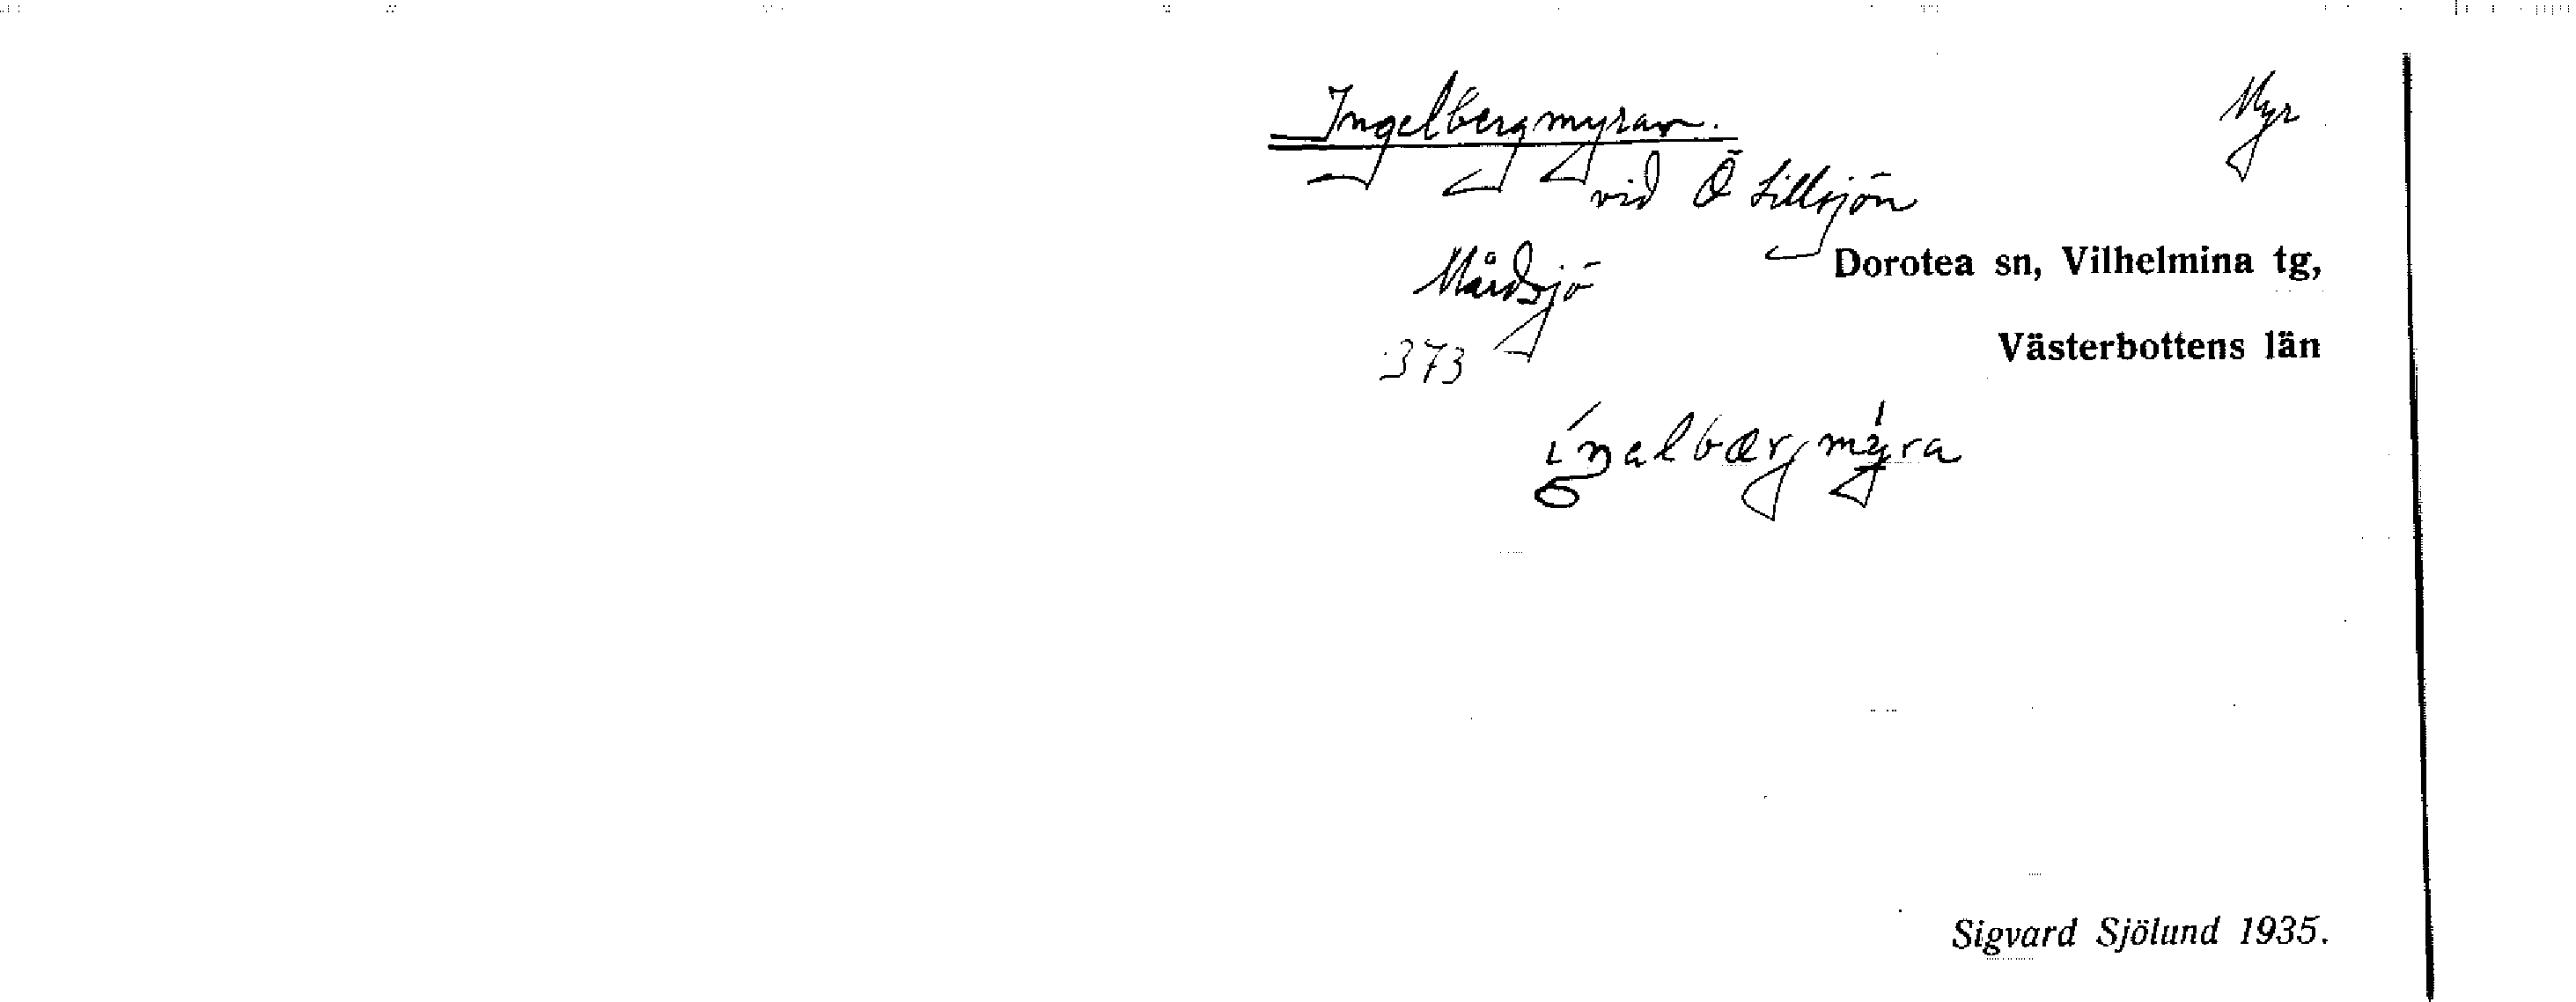 Ingelbergmyran. Myr
vid Ö Lillsjön
Mårdsjö Dorotea sn, Vilhelmina tg,
373 Västerbottens län
íŋəlbærjmýra
Sigvard Sjölund 1935.